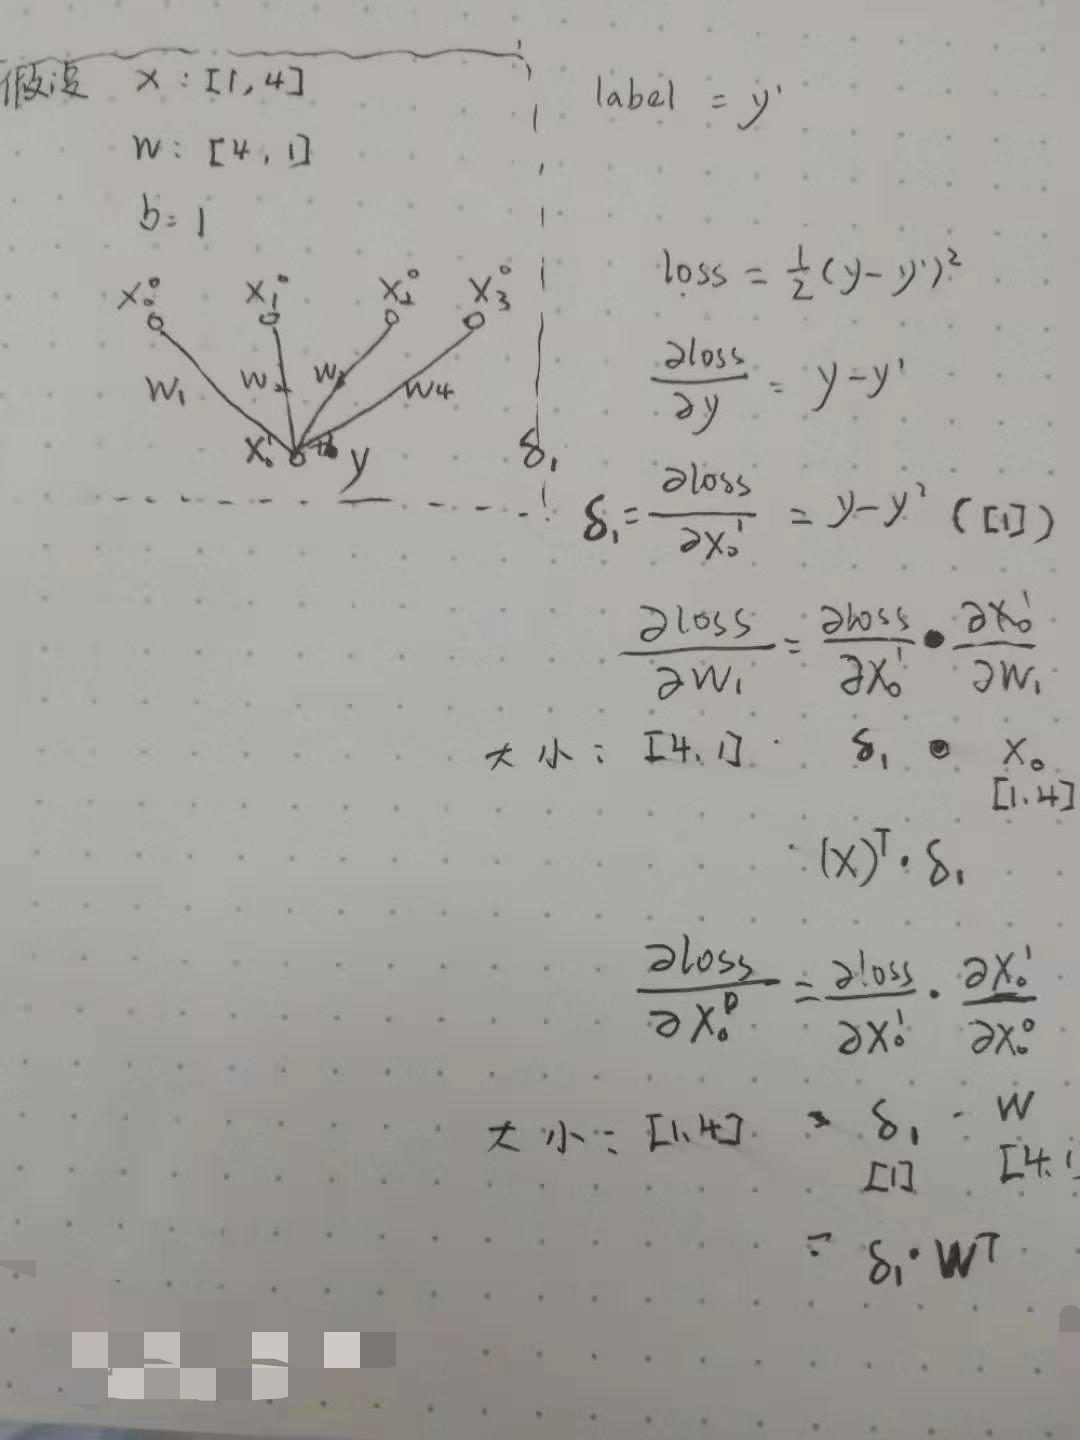 假设 x : [1, 4]
w : [4, 1]
b = 1
x₀⁰ x₁⁰ x₂⁰ x₃⁰
w₁ w₂ w₃ w4
x₀¹ y
label = y'
loss = 1/2 (y - y')²
∂loss/∂y = y - y'
δ₁
δ₁ = ∂loss/∂x₀¹ = y - y' ([1])
∂loss/∂w₁ = ∂loss/∂x₀¹ • ∂x₀¹/∂w₁
大小 : [4, 1] δ₁ • x₀
[1, 4]
(x)ᵀ · δ₁
∂loss/∂x₀⁰ = ∂loss/∂x₀¹ · ∂x₀¹/∂x₀⁰
大小 : [1, 4] = δ₁ · w
[1] [4, 1
= δ₁ · wᵀ